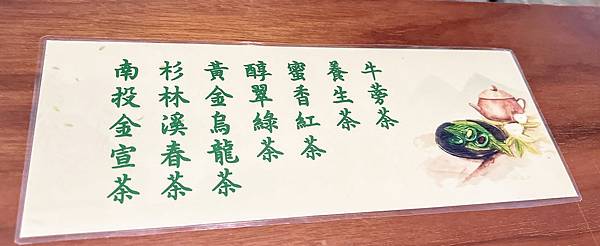 牛蒡茶
養生茶
蜜香紅茶
醇翠綠茶
黃金烏龍茶
杉林溪春茶
南投金宣茶